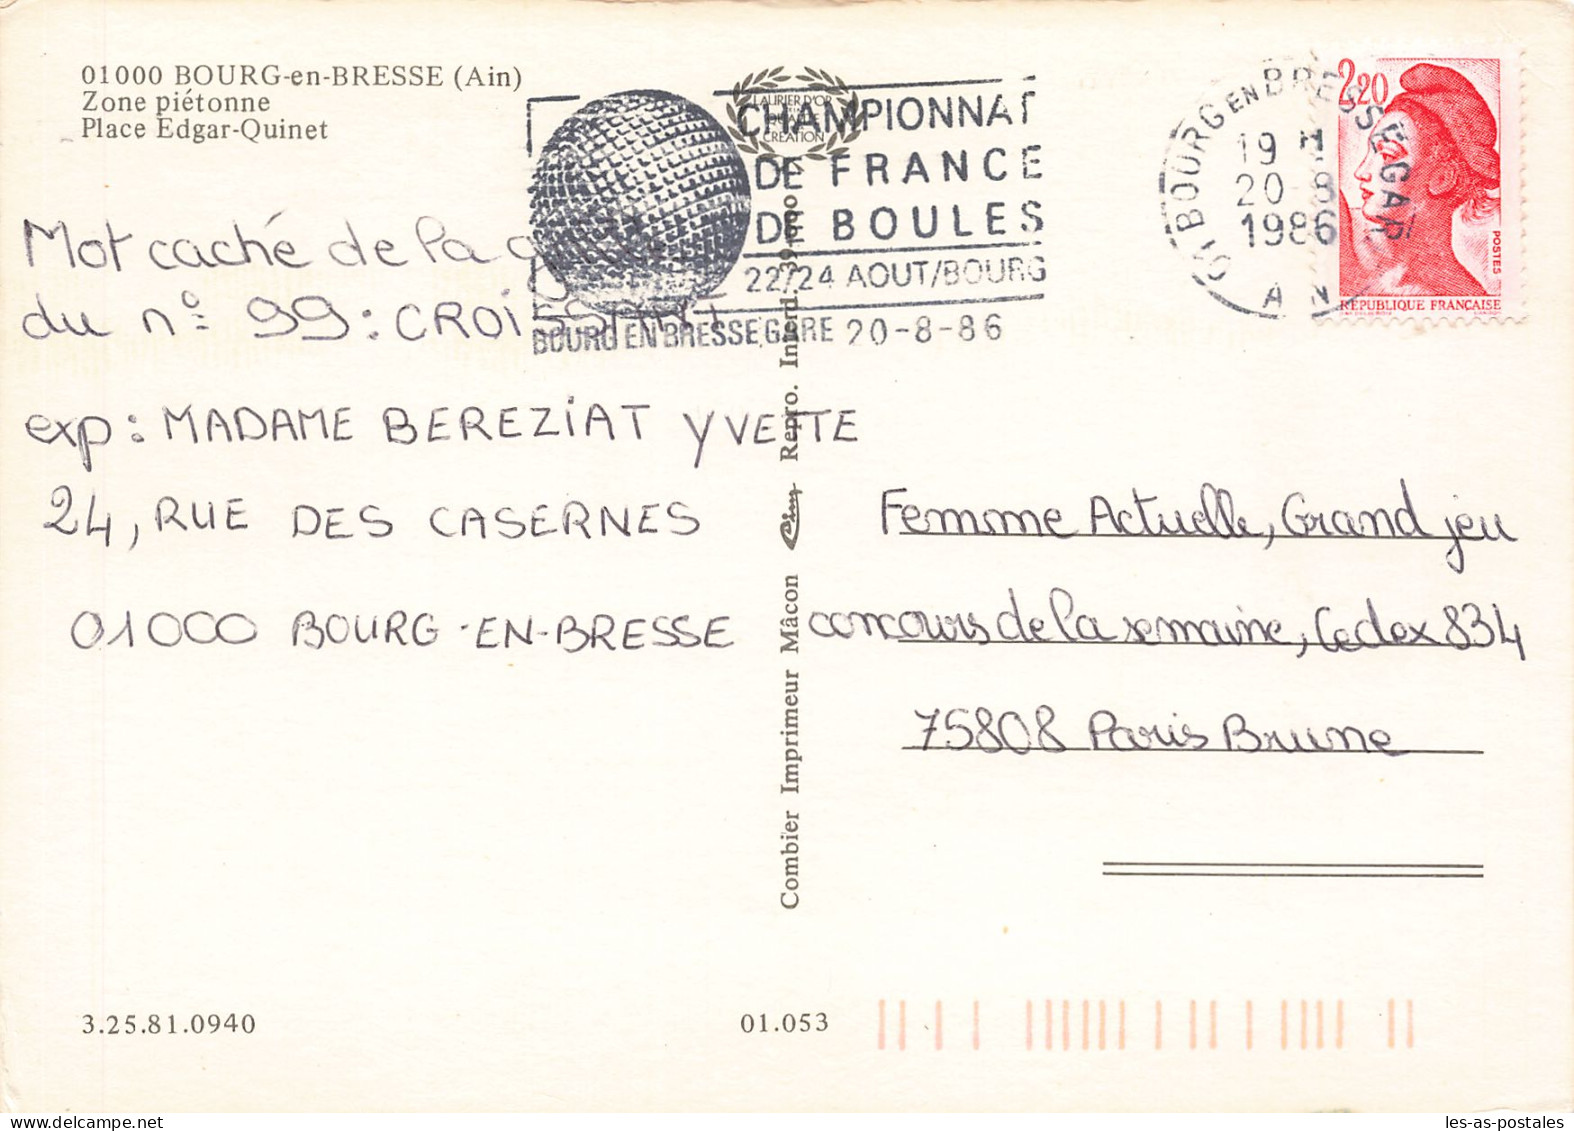 01000 BOURG-en-BRESSE (Ain)
Zone piétonne
Place Edgar-Quinet
LAURIER D'OR
QUALITÉ
CRÉATION
CHAMPIONNAT
DE FRANCE
DE BOULES
22/24 AOUT/BOURG
BOURG EN BRESSE GARE 20-8-86
01 BOURG EN BRESSE GARE
19 H
20-8
1986
AIN
2,20
POSTES
RÉPUBLIQUE FRANÇAISE
Mot caché de la
du n° 99 : CROISSANT
exp : MADAME BEREZIAT YVETTE
24, RUE DES CASERNES
01000 BOURG-EN-BRESSE
Combier Imprimeur Mâcon Cim Repro. Interd.
Femme Actuelle, Grand jeu
concours de la semaine, Cedex 834
75808 Paris Brune
3.25.81.0940
01.053
les-as-postales